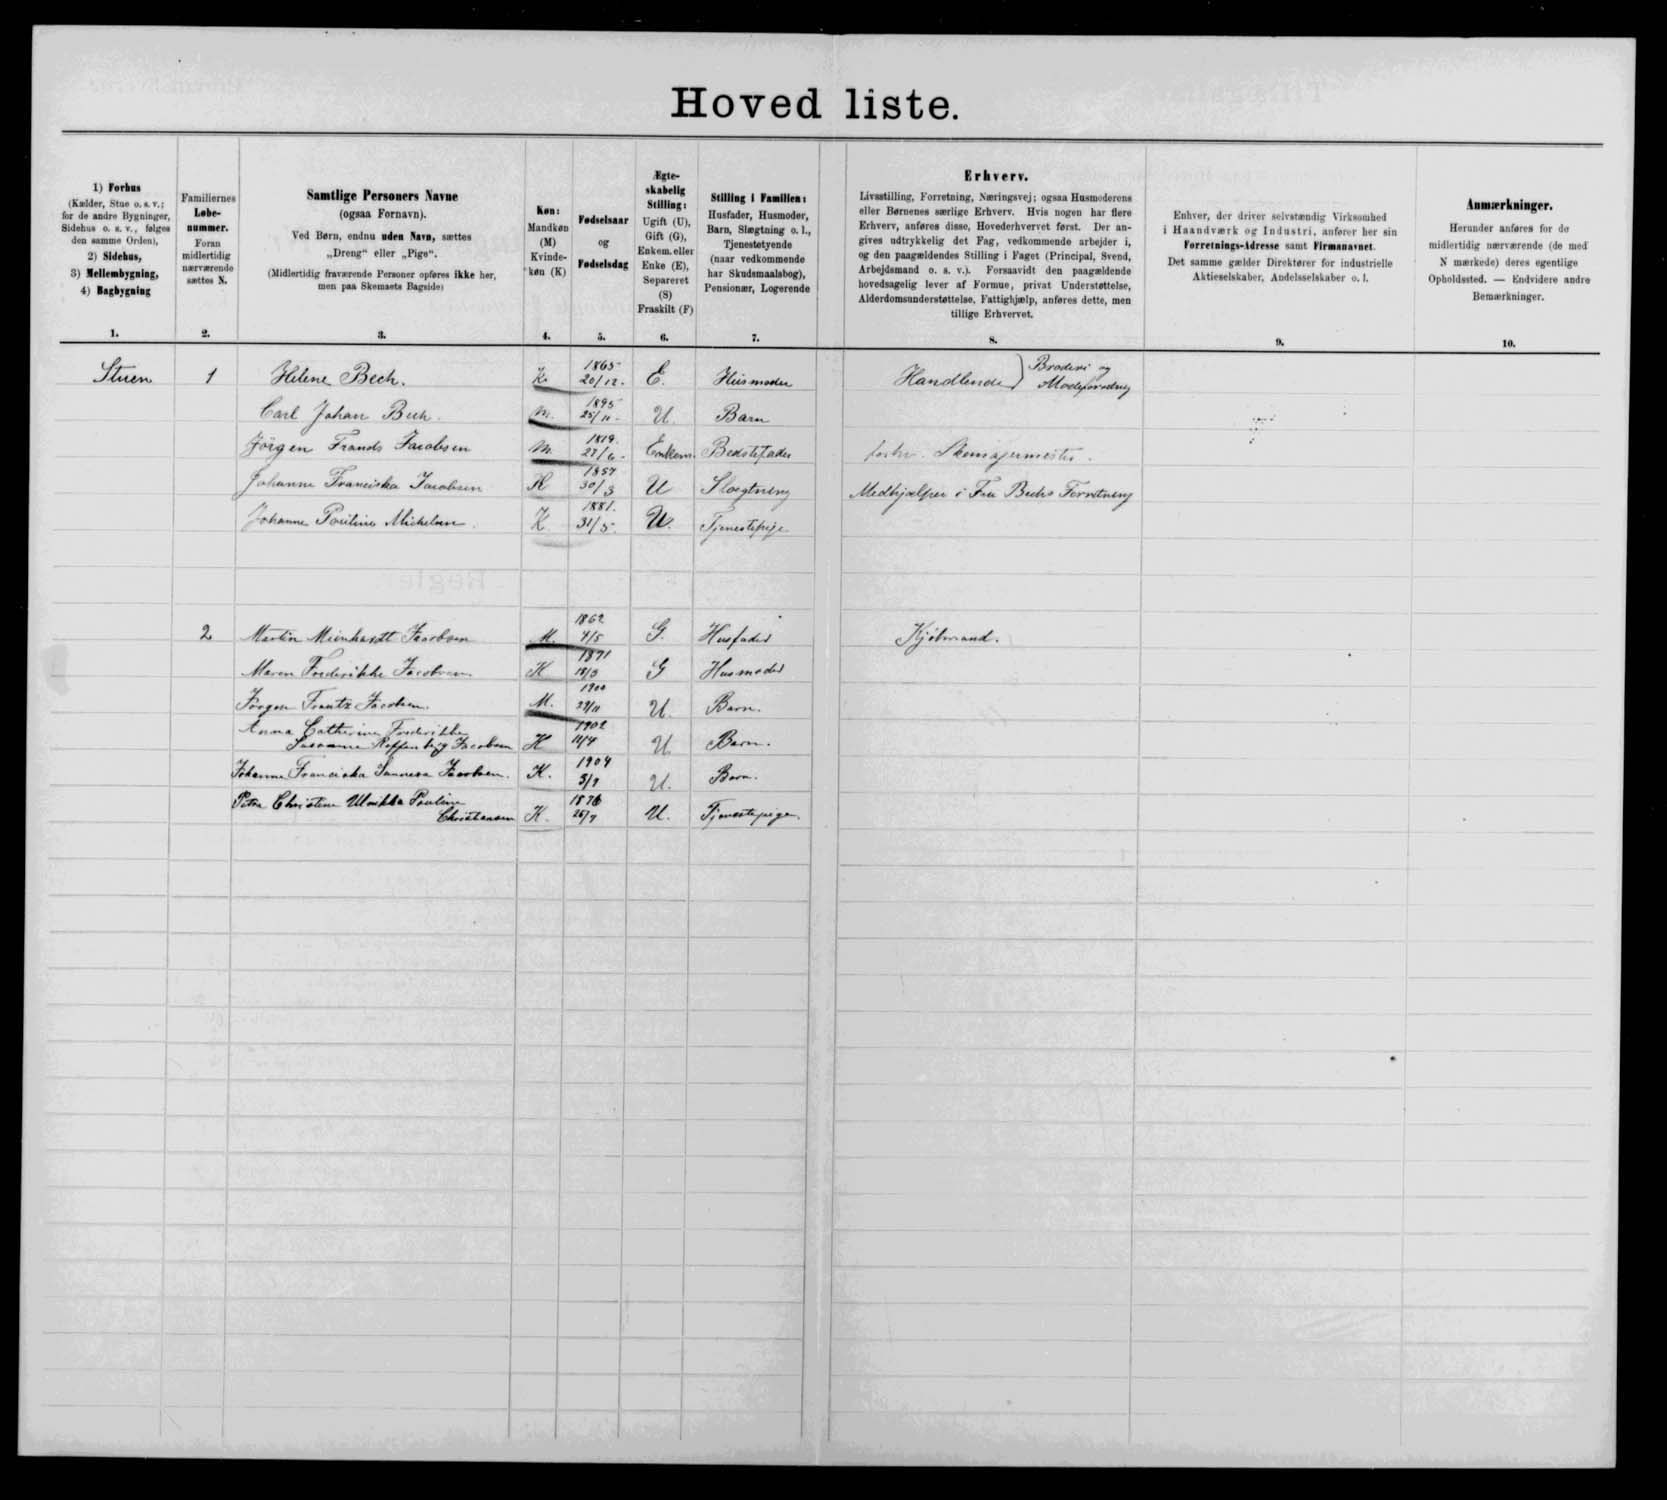 Hoved liste.
1) Forhus
(Kælder, Stue o. s. v.;
for de andre Bygninger,
Sidehus o. s. v., følges
den samme Orden),
2) Sidehus,
3) Mellembygning,
4) Bagbygning
1.
Familiernes
Løbe-
nummer.
Foran
midlertidig
nærværende
sættes N.
2.
Samtlige Personers Navne
(ogsaa Fornavn).
Ved Børn, endnu uden Navn, sættes
„Dreng“ eller „Pige“.
(Midlertidig fraværende Personer opføres ikke her,
men paa Skemaets Bagside)
3.
Køn:
Mandkøn
(M)
Kvinde-
køn (K)
4.
Fødselsaar
og
Fødselsdag
5.
Ægte-
skabelig
Stilling:
Ugift (U),
Gift (G),
Enkem. eller
Enke (E),
Separeret
(S)
Fraskilt (F)
6.
Stilling i Familien:
Husfader, Husmoder,
Barn, Slægtning o. l.,
Tjenestetyende
(naar vedkommende
har Skudsmaalsbog),
Pensionær, Logerende
7.
Erhverv.
Livsstilling, Forretning, Næringsvej; ogsaa Husmoderens
eller Børnenes særlige Erhverv. Hvis nogen har flere
Erhverv, anføres disse, Hovederhvervet først. Der an-
gives udtrykkelig det Fag, vedkommende arbejder i,
og den paagældendes Stilling i Faget (Principal, Svend,
Arbejdsmand o. s. v.). Forsaavidt den paagældende
hovedsagelig lever af Formue, privat Understøttelse,
Alderdomsunderstøttelse, Fattighjælp, anføres dette, men
tillige Erhvervet.
8.
Enhver, der driver selvstændig Virksomhed
i Haandværk og Industri, anfører her sin
Forretnings-Adresse samt Firmanavnet.
Det samme gælder Direktører for industrielle
Aktieselskaber, Andelsselskaber o. l.
9.
Anmærkninger.
Herunder anføres for de
midlertidig nærværende (de med
N mærkede) deres egentlige
Opholdssted. — Endvidere andre
Bemærkninger.
10.
Stuen 1 Helene Bech. K. 1865 20/12. E. Husmoder Handlende Broderi og
Modeforretning
Carl Johan Bech. M. 1895 25/11 U. Barn
Jörgen Frands Jacobsen M. 1819. 27/6 Enkem. Bedstefader forhv.
Johanne Franciska Jacobsen K 1857 30/3 U Slægtning Medhjælper i Fru Bechs Forretning
Johanne Pouline Michelsen. K. 1881. 31/5. U. Tjenestepige
2 Martin Meinhardt Jacobsen M. 1862 4/5 G. Husfader Kjøbmand.
Maren Frederikke Jacobsen. K 1871 18/3 G Husmoder
Jörgen Frantz Jacobsen. M. 1900 U. Barn.
Anna Cathrine Frederikke
Susanne Jacobsen K 1902 U Barn.
Johanne Franciska Jacobsen. K. 1904 U. Barn.
Petra Christine Ulrikka Pouline
Christensen K. U. Tjenestepige.